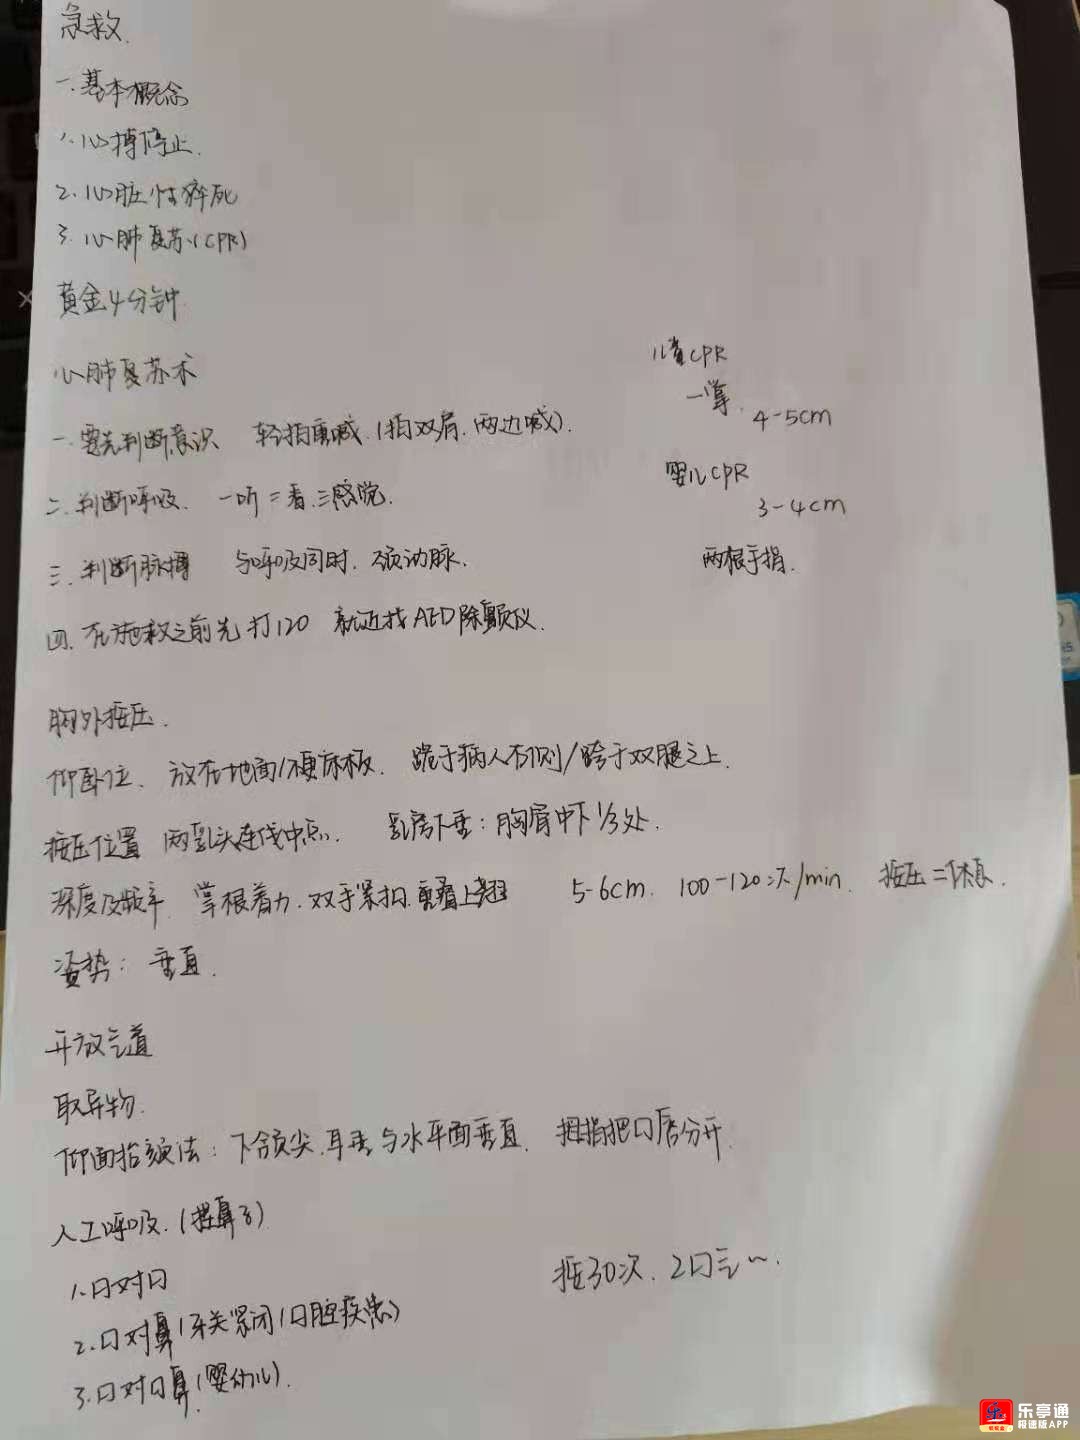 急救.
一.基本概念
1.心搏停止.
2.心脏性猝死
3.心肺复苏(CPR)
黄金4分钟
心肺复苏术
儿童CPR
一掌.
4-5cm
一.要先判断意识 轻拍重喊.(拍双肩.两边喊).
婴儿CPR
二.判断呼吸. 一听二看.三感觉.
3-4cm
三.判断脉搏 与呼吸同时.颈动脉.
两根手指.
四.在施救之前先打120 就近找AED除颤仪.
胸外按压.
仰卧位. 放在地面/硬床板. 跪于病人右侧/跨于双腿之上.
按压位置 两乳头连线中点. 乳房下垂:胸骨中下1/3处.
深度及频率. 掌根着力.双手紧扣.重叠上翘 5-6cm. 100-120次/min. 按压=休息.
姿势:垂直.
开放气道
取异物.
仰面抬颏法:下颌尖.耳垂与水平面垂直. 拇指把口唇分开.
人工呼吸.(捏鼻子)
1.口对口
按30次.2口气~.
2.口对鼻(牙关紧闭/口腔疾患)
3.口对口鼻(婴幼儿).
乐亭通
极速版APP